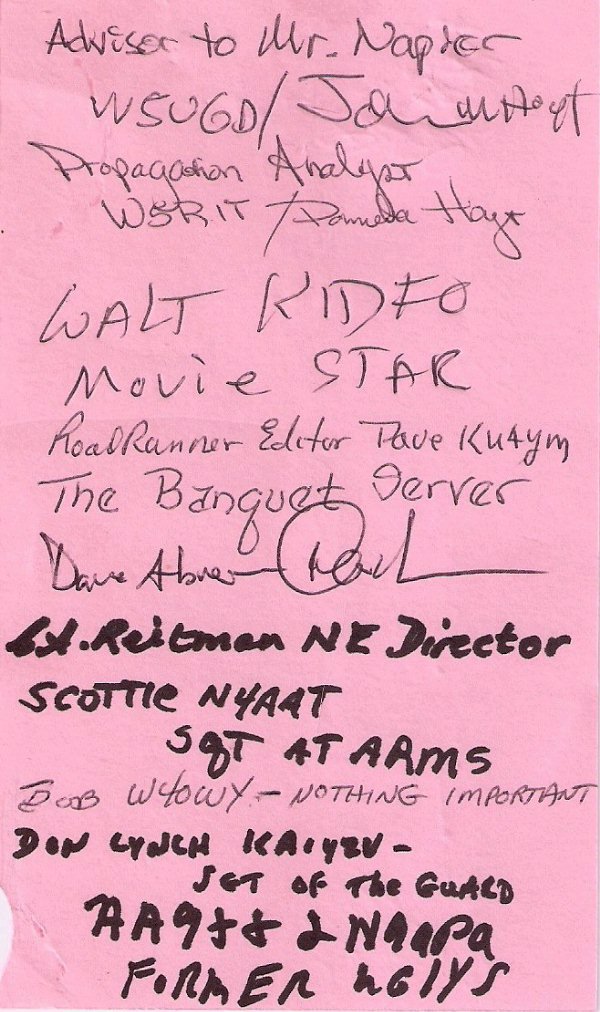 Advisor to Mr. Napier
W5UGD/ John M Hoyt
Propagation Analyst
W5RIT / Pamela Hoyt
WALT KIDFO
Movie STAR
RoadRunner Editor Dave KU4YM
The Banquet Server
Dave Abner
Reitman NE Director
SCOTTIE NY4AT
SGT AT ARMS
BOB W4OWY - NOTHING IMPORTANT
DON LYNCH KA1YZV -
SGT OF The GUARD
FORMER